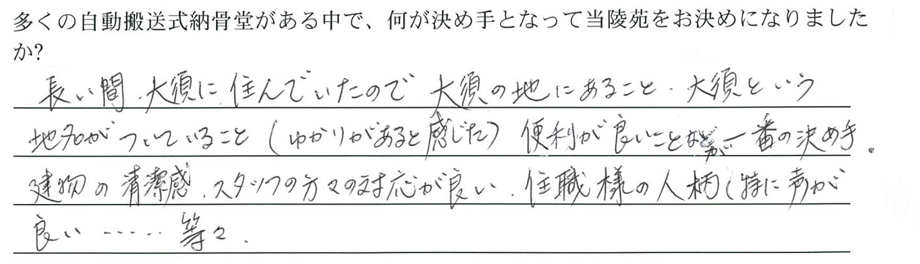 多くの自動搬送式納骨堂がある中で、何が決め手となって当陵苑をお決めになりました
か?
長い間、大須に住んでいたので 大須の地にあること、大須という
地名がついていること(ゆかりがあると感じた) 便利が良いことなどが一番の決め手。
建物の清潔感、スタッフの方々の対応が良い、住職様の人柄(特に声が
良い……等々.